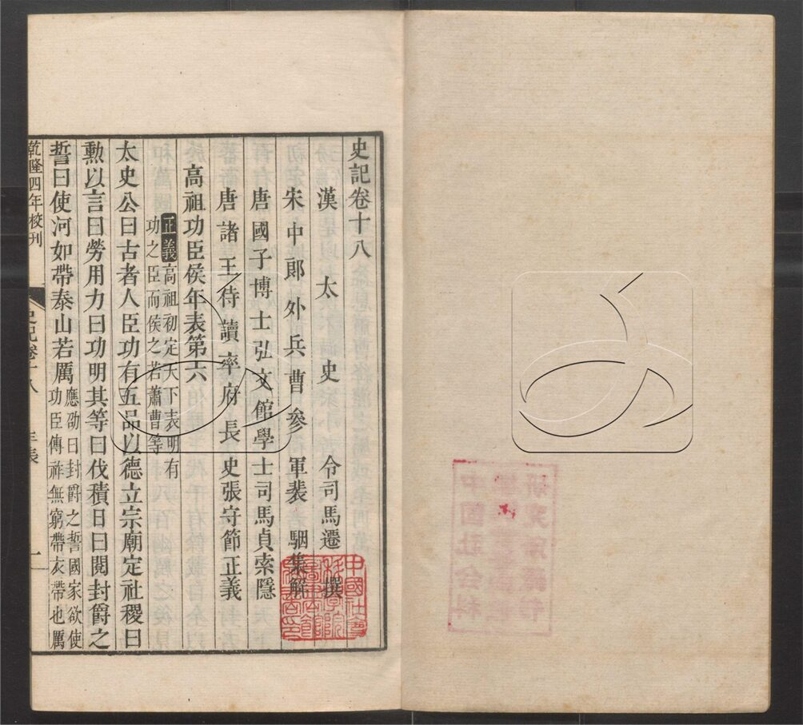 史記卷十八
漢太史令司馬遷撰
宋中郞外兵曹參軍裴駰集解
唐國子博士弘文館學士司馬貞索隱
唐諸王侍讀率府長史張守節正義
高祖功臣侯年表第六
正義高祖初定天下表明有
功之臣而侯之若蕭曹等
太史公曰古者人臣功有五品以德立宗廟定社稷曰
勲以言曰勞用力曰功明其等曰伐積日曰閱封爵之
誓曰使河如帶泰山若厲
應劭曰封爵之誓國家欲使
功臣傳祚無窮帶衣帶也厲
乾隆四年校刊
史記卷十八 年表 一
中國社會
科學院